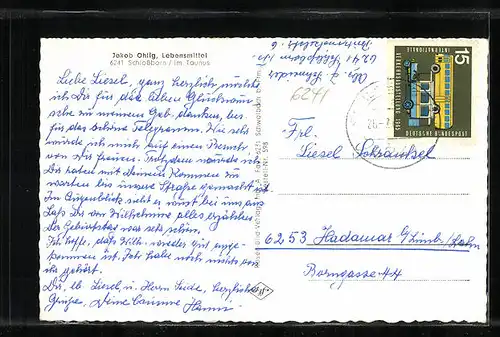 Jakob Ohlig, Lebensmittel
6241 Schloßborn / im Taunus
Liebe Liesel, ganz herzlich möchte
ich Dir für die lieben Glückwün-
sche zu meinem Geb. danken, bes.
für das schöne Telegramm. Wie sehr
würde ich mich auf einen Besuch
von Dir freuen. Trotzdem würde ich
Dir raten mit Deinem Kommen zu
warten bis unsere Straße gemacht ist.
Im Augenblick sieht es wüst bei uns aus.
Laß Dir von Wilhelmine alles erzählen.
Der Geburtstag war sehr schön.
Ich hoffe, daß Wilh. wieder gut ange-
kommen ist. Ich habe noch nichts von
ihr gehört.
Dir, lb. Liesel u. Herrn herzliche
Grüße, Deine
Abs. Schneider
6241 Schloßborn/Ts.
6291
15
INTERNATIONALE
VERKEHRSAUSSTELLUNG 1965
DEUTSCHE BUNDESPOST
Frl.
Liesel
6253 Hadamar b/Limb./Lahn
Borngasse 44